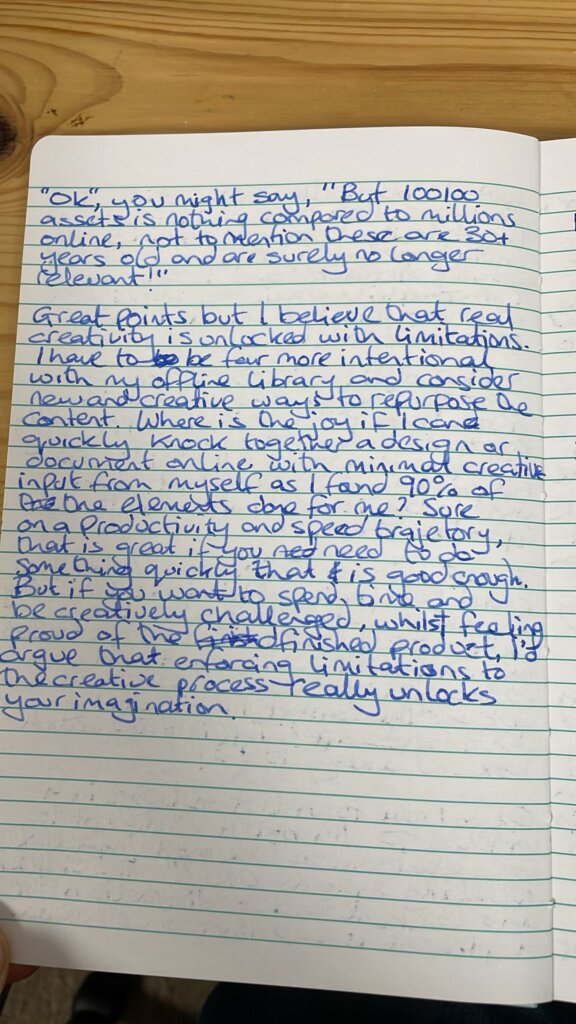 "Ok", you might say, "But 100100
assets is nothing compared to millions
online, not to mention these are 30+
years old and are surely no longer
relevant!"
Great points but I believe that real
creativity is unlocked with limitations.
I have to be far more intentional
with my offline library and consider
new and creative ways to repurpose the
content. Where is the joy if I can
quickly knock together a design or
document online with minimal creative
input from myself as I found 90% of
the elements done for me? Sure
on a productivity and speed trajetory,
that is great if you need need to do
something quickly that is good enough.
But if you want to spend time and
be creatively challenged, whilst feeling
proud of the finished product, I'd
argue that enforcing limitations to
the creative process really unlocks
your imagination.